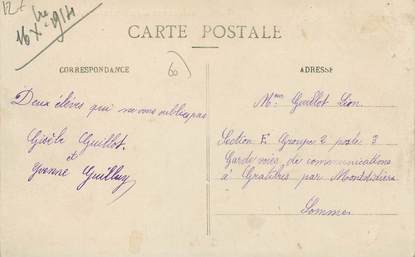 127
16 Xbre 1914
CARTE POSTALE
60
CORRESPONDANCE
ADRESSE
Deux élèves qui ne vous oublies pas
Gisèle Guillot.
et
Yvonne Guilluy
Mr Guillot Léon
Section E Groupe 2 poste 3
Garde voies de communications
à Gratibus par Montdidier
Somme